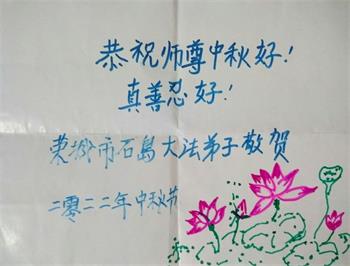 恭祝师尊中秋好!
真善忍好!
荣城市石島大法弟子敬贺
二零二二年中秋节